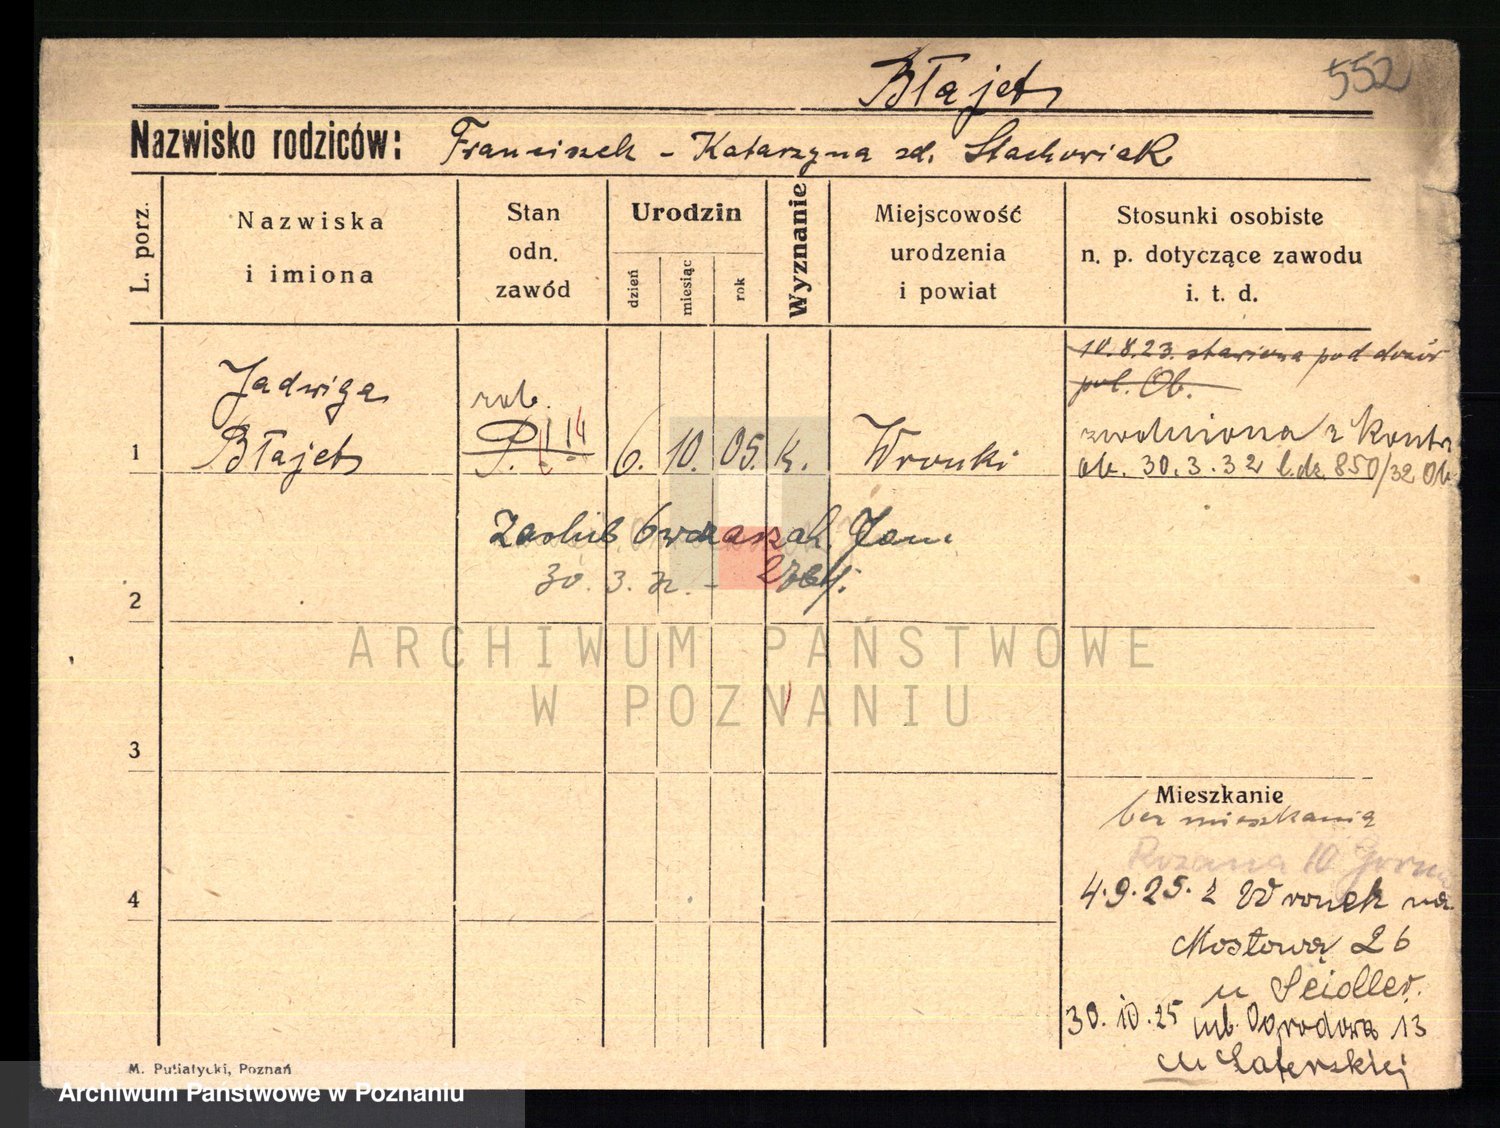 Błajet
552
Nazwisko rodziców: Franciszek - Katarzyna zd. Stachowiak
L. porz.
Nazwiska
i imiona
Stan
odn.
zawód
Urodzin
dzień
miesiąc
rok
Wyznanie
Miejscowość
urodzenia
i powiat
Stosunki osobiste
n. p. dotyczące zawodu
i. t. d.
10.8.23. stawiona pod dozór
pol. Ob.
1
Jadwiga
Błajet
rob.
6. 10. 05. k. Wronki
zwolniona z kontr
ob. 30.3.32 l.dz. 850/32 Ob.
2
Zaślub Owczarzak Jan
30.3.32. -
3
4
Mieszkanie
bez mieszkania
Rozana 10
4.9.25. z Wronek na
Mostową 26
u Seidler.
30.10.25 mb. Ogrodowa 13
u Laferskiej
M. Putiatycki, Poznań
ARCHIWUM PAŃSTWOWE
W POZNANIU
Archiwum Państwowe w Poznaniu